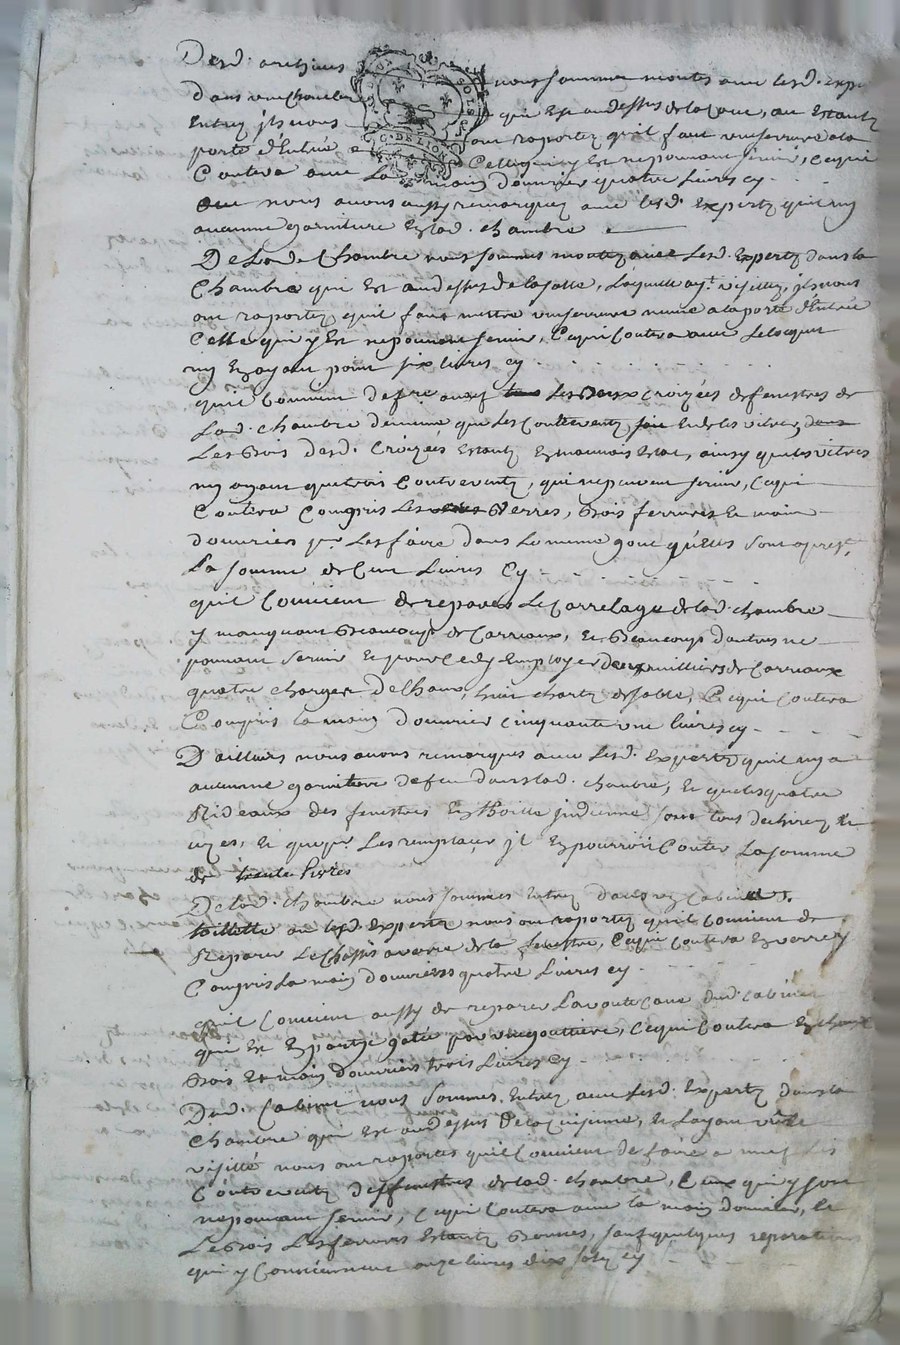 Desd. archives nous sommes montés avec lesd. exp
dans une chambre qui est audessus de la cave, ou estantz
Entrez jls nous ont raportez qu'il faut une serrure a la
porte d'Entrée Celle qui y est ne pouvant servir, Ce qui
Coutera avec La main d'ouvrier quatre Livres cy
nous avons aussy remarquez avec lesd. Expertz qu'il ny
aucunne garniture En lad. chambre
De Lad. Chambre nous sommes montez avec Lesd. Expertz dans la
Chambre qui Est audessus de la salle, Laquelle ayt. visittez, jls nous
ont raportez qu'il faut mettre une serrure neuve a la porte d'Entrée
Celle qui y Est ne pouvant servir, Ce qui Coutera avec Le loquet
ny En ayant point six livres cy
qu'il Convient de faire a neuf Les deux croizées de fenestres de
Lad. chambre de meme que les Contreventz et les vitres
Les Bois desd. Croizées Estantz En mauvais Etat, ainsy que les vitres
ny ayant que trois Contreventz, qui ne peuvent servir, Ce qui
Coutera Compris Les Verres, Bois ferrures et main
d'ouvriers pr. Les faire dans Le meme gout qu'Elles sont apresnt.
La somme de Cent Livres Cy
qu'il Convient de reparer Le Carrelage de lad. chambre
y manquant Beaucoup de Carreaux, et Beaucoup d'autres ne
pouvant servir et pour ce dy Employer deux milliers de Carreaux
quatre charges de Chaux, huit chartz de sable, Ce qui Coutera
Compris La main d'ouvrier Cinquante une livres cy
D'ailleurs nous avons remarqués avec Lesd. Expertz qu'il ny a
aucunne garniture de feu dans lad. chambre, et que les quatre
Rideaux des fenestres En Thoille jndienne sont tous dechirez et
uzes, et que pr. Les remplacer jl En pourroit Couter La somme
de trente livres
De lad. chambre nous sommes Entrez dans un Cabinet
toillette ou lesd. Expertz nous ont raportez qu'il Convient de
Reparer Le Chassis a verre de la fenestre, Ce qui Coutera En verre
Compris La main d'ouvriers quatre Livres cy
qu'il Convient aussy de reparer La voute dud. Cabinet
qui Est En partye gatée par une gouttiere, Ce qui Coutera En chaux
Bois Et main d'ouvriers trois Livres Cy
Dud. Cabinet nous sommes Entrez avec Lesd. Expertz dans la
Chambre qui Est audessus de la Cuisinne, et Layant
visitté nous ont raportes qu'il Convient de faire a neuf Les
Contreventz des fenestres de lad. chambre, Ceux qui y sont
ne pouvant servir, Ce qui Coutera avec La main d'ouvrier, et
Le Bois Les ferrures Estantz Bonnes, sauf quelques reparations
qui y Conviennent onze livres dix solz cy